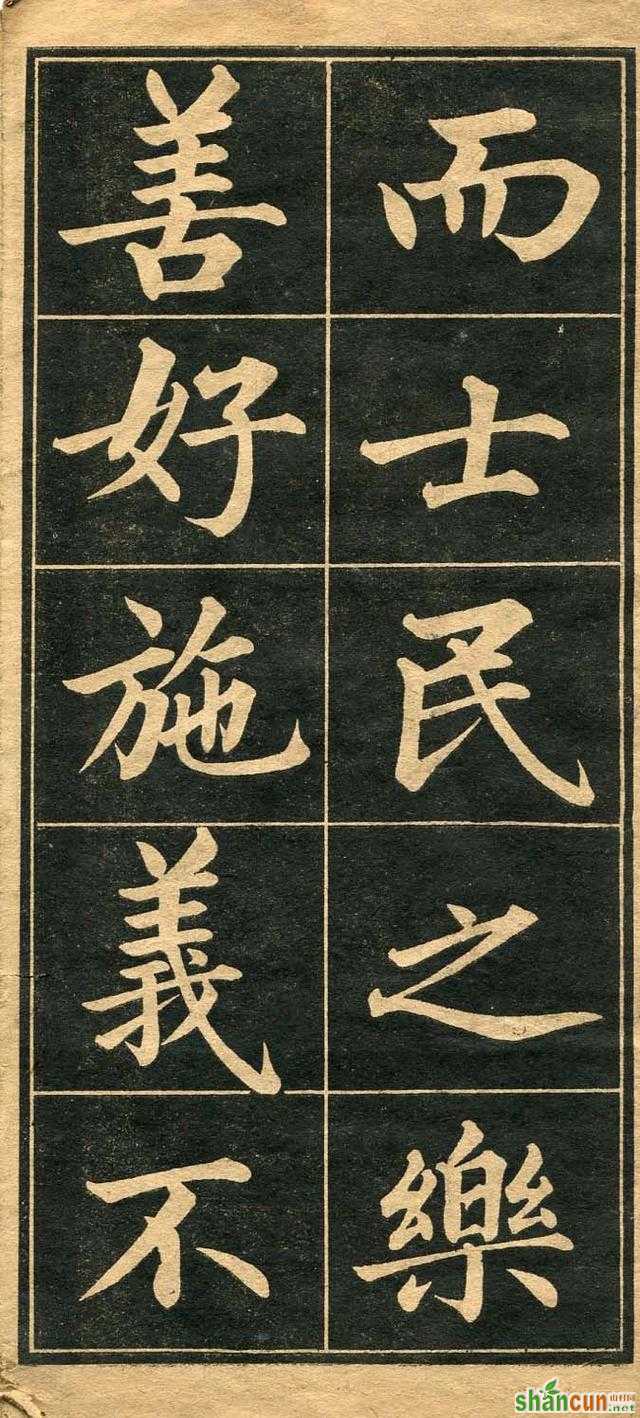 而士民之樂
善好施義不
shancun
山村网
.net